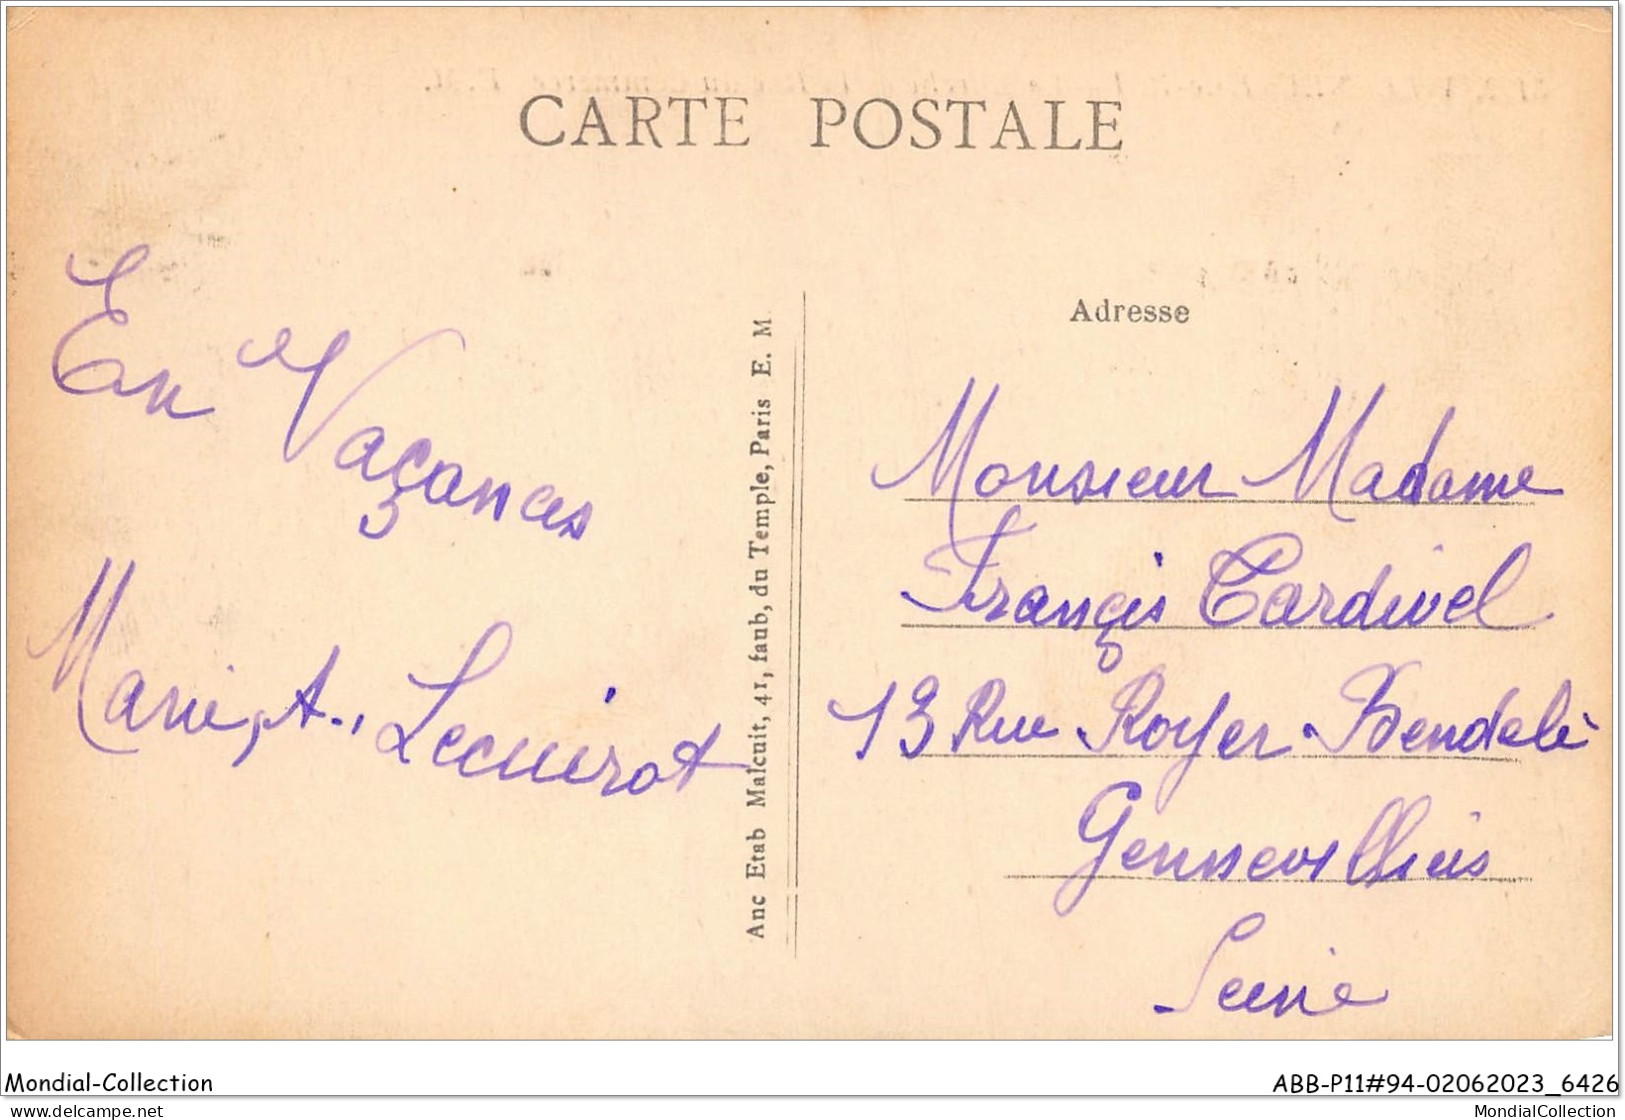 CARTE POSTALE
En Vaçances
Marie, A., Lecuirot
Anc Etab Malcuit, 41, faub, du Temple, Paris E. M
Adresse
Monsieur Madame
Françis Cardivel
13 Rue Royer-Bendelé
Gennevilliers
Seine
Mondial-Collection
ABB-P11#94-02062023_6426
delcampe.net
MondialCollection